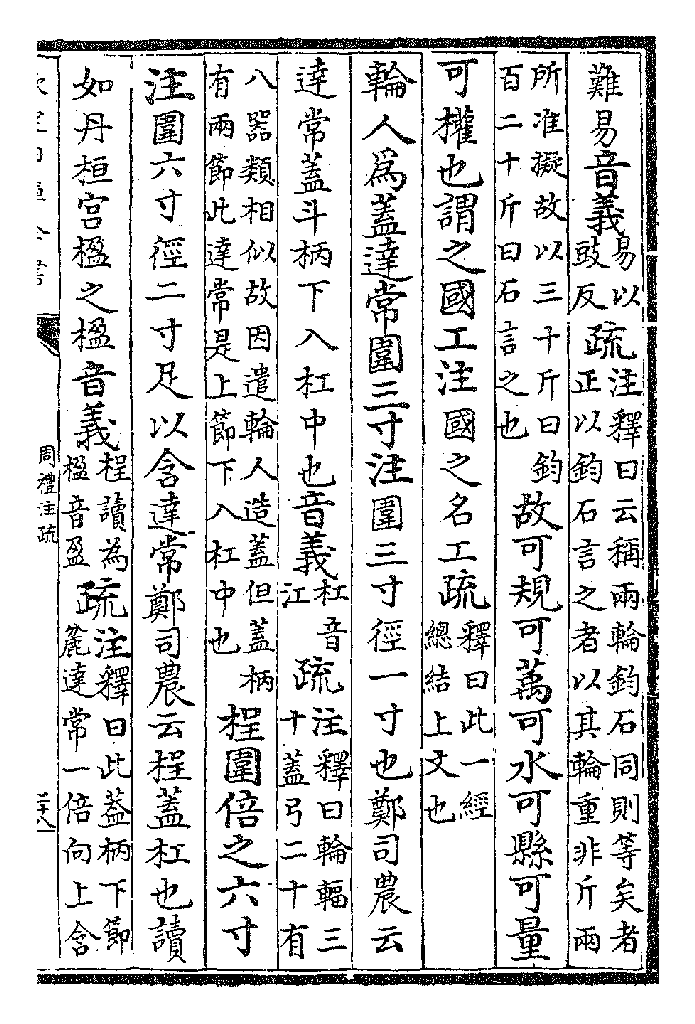 難易音義易以豉反疏注釋曰云稱兩輪鈞石同則等矣者正以鈞石言之者以其輪重非斤兩
所准擬故以三十斤曰鈞百二十斤曰石言之也故可規可萬可水可縣可量
可權也謂之國工注國之名工疏釋曰此一經總結上文也
輪人爲蓋達常圍三寸注圍三寸徑一寸也鄭司農云
達常蓋斗柄下入杠中也音義杠音江疏注釋曰輪輻三十蓋弓二十有
八器類相似故因遣輪人造蓋但蓋柄有兩節此達常是上節下入杠中也桯圍倍之六寸
注圍六寸徑二寸足以含達常鄭司農云桯蓋杠也讀
如丹桓宮楹之楹音義桯讀為楹音盈疏注釋曰此蓋柄下節麄達常一倍向上含
周禮注疏